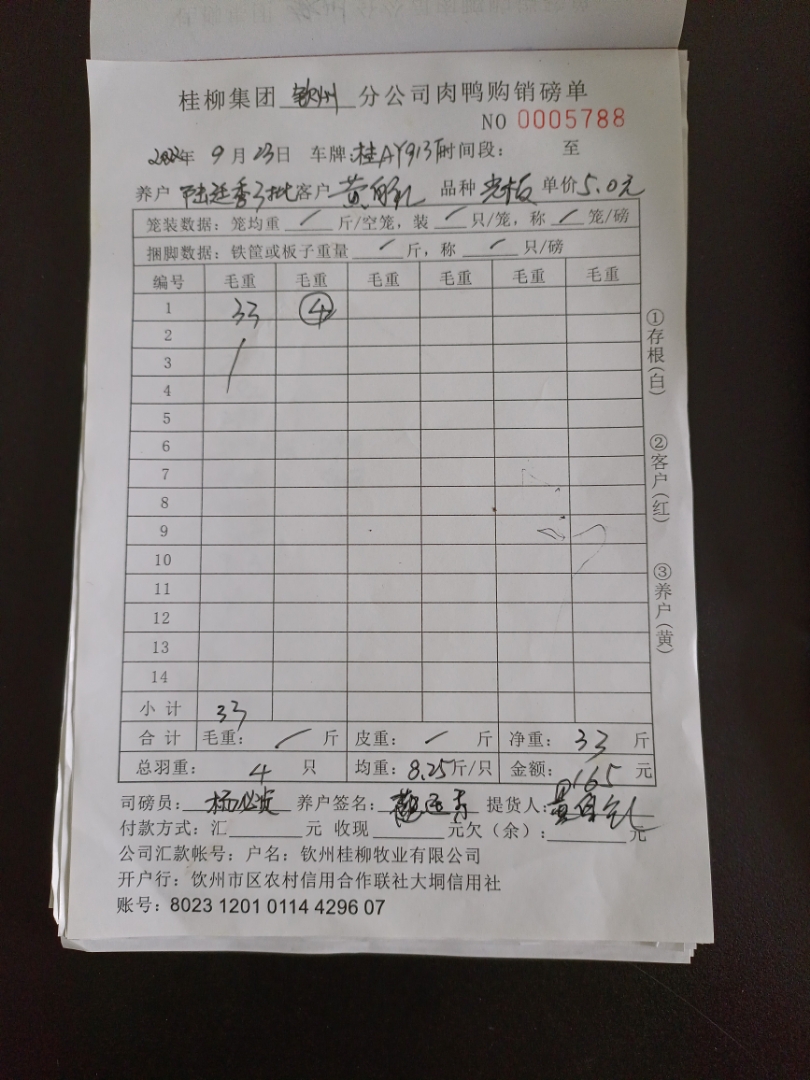 桂柳集团 钦州 分公司肉鸭购销磅单
NO 0005788
2022年 9 月 23日 车牌:桂AY913 时间段: 至
养户 陆廷秀3批 客户 黄 品种 光板 单价5.0元
笼装数据: 笼均重 / 斤/空笼, 装 / 只/笼, 称 / 笼/磅
捆脚数据: 铁筐或板子重量 / 斤, 称 / 只/磅
编号 毛重 毛重 毛重 毛重 毛重 毛重
1 33 ④
2
3
4
5
6
7
8
9
10
11
12
13
14
小 计 33
合 计 毛重: / 斤 皮重: / 斤 净重: 33 斤
总羽重: 4 只 均重: 8.25斤/只 金额: 165 元
司磅员: 杨 养户签名: 提货人: 黄
付款方式: 汇 元 收现 元欠(余): 元
公司汇款帐号: 户名: 钦州桂柳牧业有限公司
开户行: 钦州市区农村信用合作联社大垌信用社
账号: 8023 1201 0114 4296 07
①存根(白)
②客户(红)
③养户(黄)